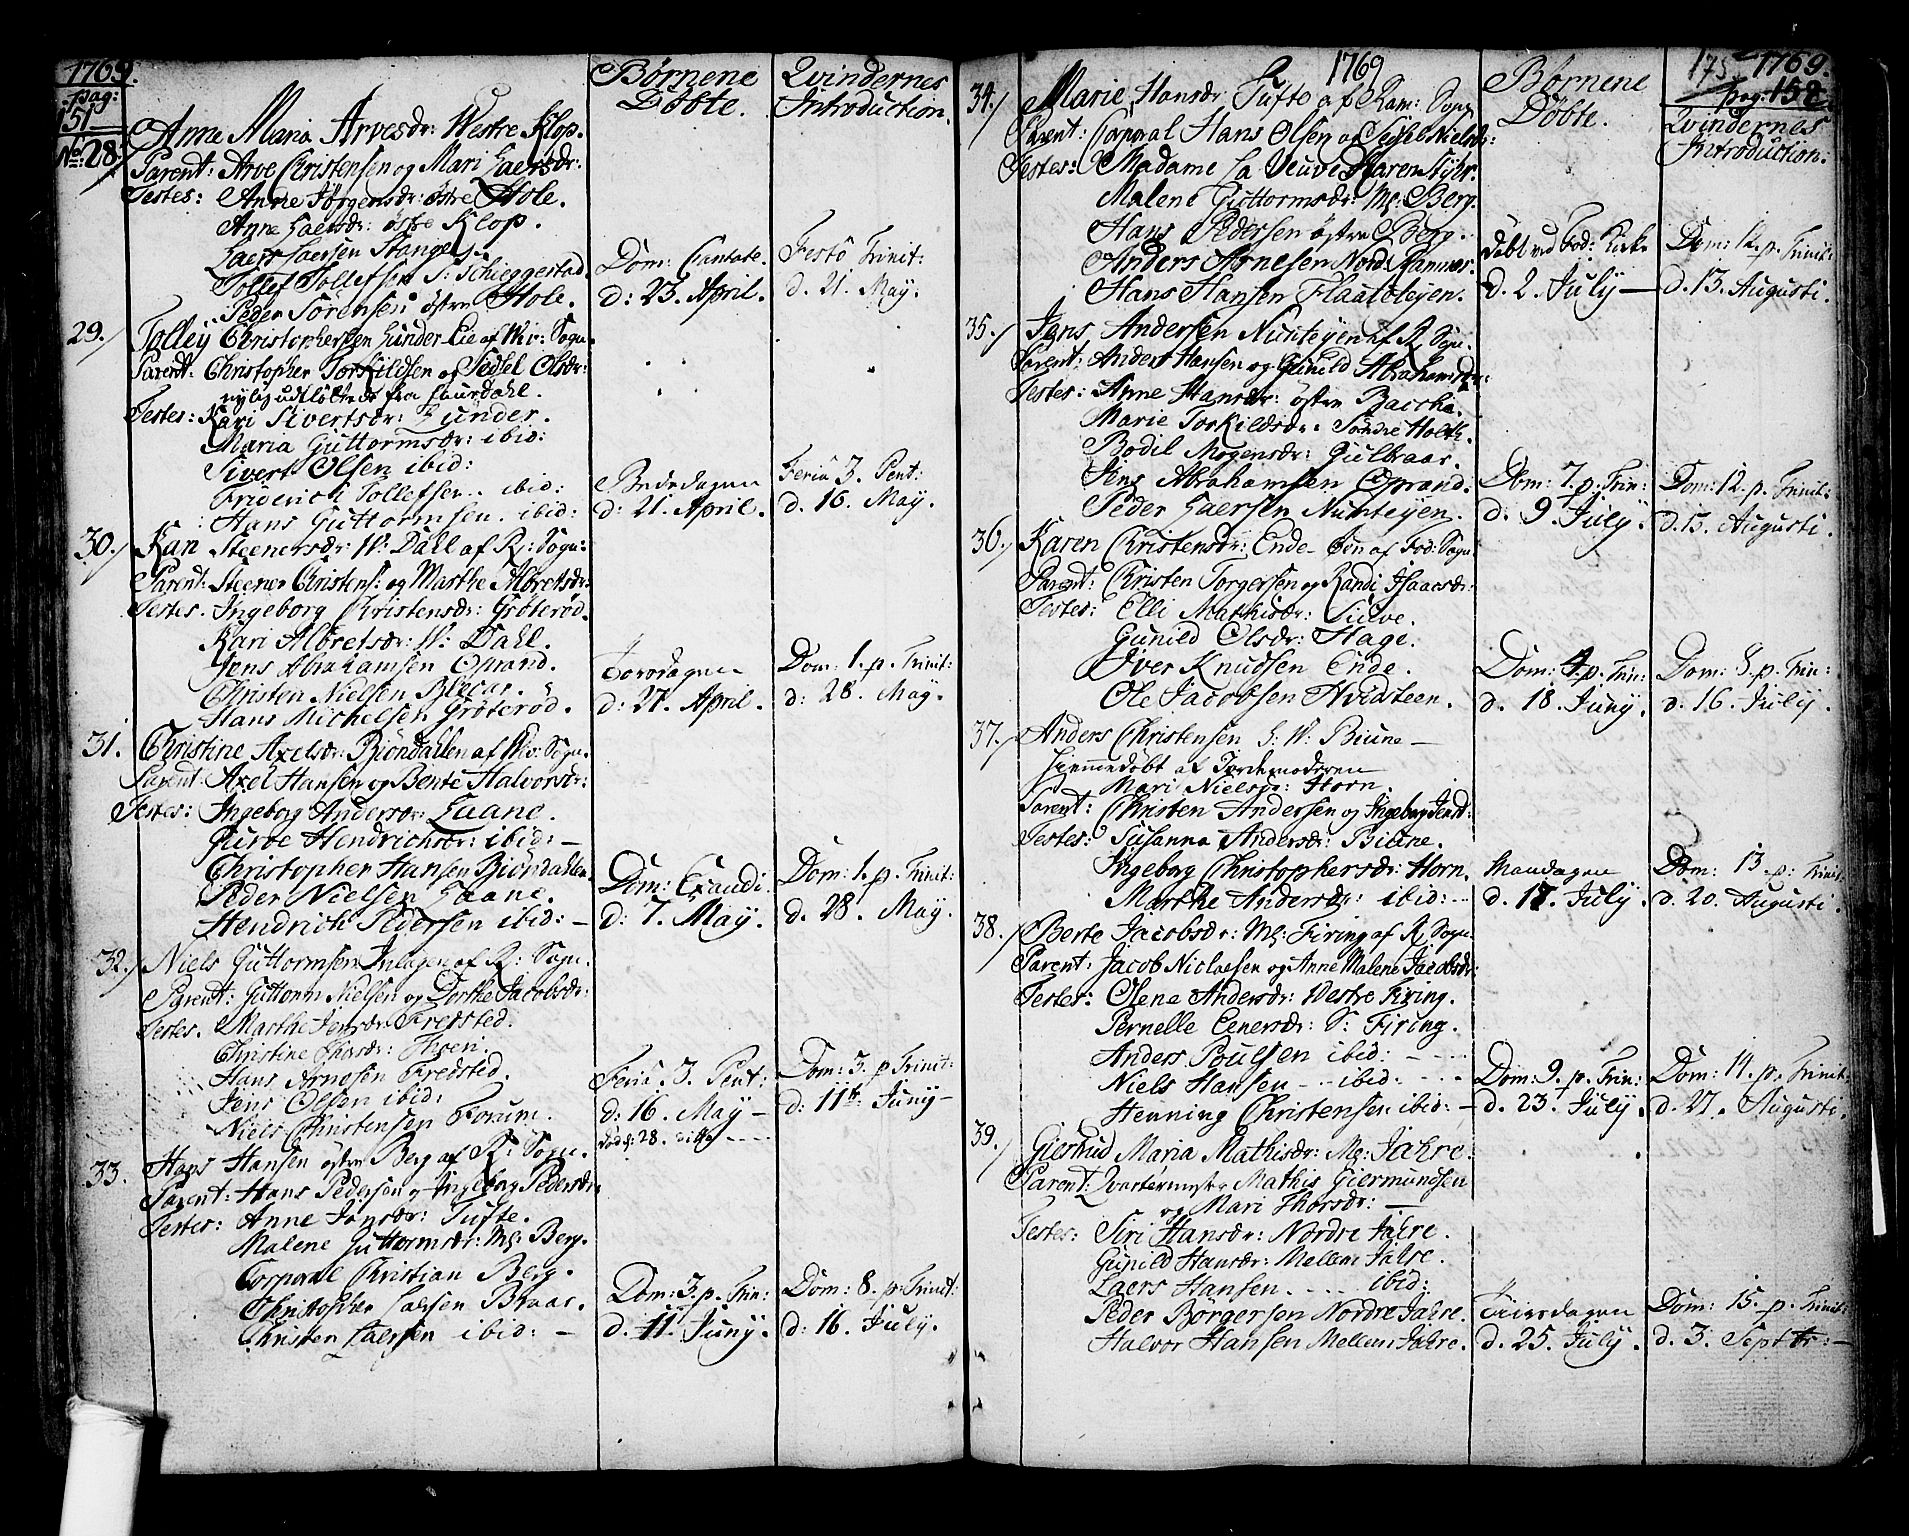 1769.
pag:
151
Børnene
Döbte.
Qvindernes
Introduction.
No: 28./
Anne Maria Arvesdr: Westre Klop.
Parent: Arve Christensen og Mari Laersdr:
Testes: Anne Jørgensdr: östre Hole.
Anne Laersdr: östre Klop.
Laers Laersen Stange
Tollef Tollefsen S: Schieggestad
Peder Sörensen östre Hole.
Dom: Cantate.
d: 23. April.
Festo Trinit:
d. 21. May.
29./
Tolley Christophersen Lunder Eie af Sogn.
Parent: Christopher Torkildsen og Sidsel Olsdr:
nylig udflöttede fra
Testes: Kari Sivertsdr: Lunder.
Maria Guttormsdr: ibid:
Sivert Olsen ibid:
Friderich Tollefsen.. ibid:
Hans Guttormsen. ibid:
Bededagen
d: 21. April.
Feria 3. Pent:
d: 16. May.
30./
Kari Steenersdr: W: Dahl af R: Sogn:
Parent: Steener Christens: og Marthe Albretsdr:
Testes. Ingeborg Christensdr: Gröteröd.
Kari Albretsdr: W: Dahl.
Jens Abrahamsen Oprand.
Christen Nielsen
Hans Michelsen Gröteröd.
Torsdagen
d: 27. April.
Dom: 1. p. Trinit:
d: 28. May.
31.
Christine Axelsdr: Biöndahlen af Sogn.
Parent: Axel Hansen og Bente Halvorsdr:
Testes: Ingeborg Andersdr: Laane.
Gurve Hendrichsdr: ibid: —
Christopher Hansen Biöndahlen
Peder Nielsen Laane.
Hendrich Pedersen ibid: —
Dom: Exaudi.
d: 7. May.
Dom: 1. p. Trinit:
d. 28. May.
32./
Niels Guttormsen af R: Sogn.
Parent: Guttorm Nielsen og Dorthe Jacobsdr:
Testes. Marthe Jensdr: Fredsted.
Christine
Hans Arnesen Fredsted.
Jens Olsen ibid:
Niels Christensen Forum.
Feria. 3. Pent:
d: 16. May —
död d: 28. dito
Dom: 3. p Trinit:
d: 11te Juny —
33.
Hans Hansen östre Berg af R: Sogn.
Parent: Hans Pedersen og Ingeborg Pedersdr:
Testes: Anne Jonsdr: Tufte.
Malene Guttormsdr: Ml: Berg.
Corporal Christian Berg.
Christopher Laersen Braar.
Christen Laersen ibid: —
Dom: 3. p. Trin:
d. 11te Juny.
Dom: 8. p. Trinit:
d: 16. July.
1769
Børnene
Döbte.
175
1769.
pag: 152
Qvindernes
Introduction:
34./
Marie Hansdr Tufte af Ram: Sogn
Parent: Corporal Hans Olsen og Nielsdr:
Testes: Madame La Veuve Maren
Malene Guttormsdr: Ml: Berg.
Hans Pedersen östre Berg.
Anders Arnesen Nord:
Hans Hansen
döbt ved Fod: Kirke
d. 2. July —
Dom: 12. p. Trinit:
d. 13. Augusti.
35./
Jens Andersen af R: Sogn.
Parent: Anders Hansen og Gunild Abrahamsdr:
Testes: Anne Hansdr: östre Bache.
Marie Torkildsdr: Söndre Holth.
Bodil Mogensdr: Gulbaar.
Jens Abrahamsen Oprand.
Peder Laersen
Dom: 7. p. Trin:
d. 9. July.
Dom: 12. p. Trinit:
d. 13. Augusti.
36./
Karen Christensdr: Ende af Fod: Sogn
Parent: Christen Torgersen og Randi Isaacsdr:
Testes: Elli Mathisdr:
Gunild Olsdr: Hage.
Iver Knudsen Ende.
Ole Jacobsen Hvidsteen.
Dom: 4. p. Trin:
d. 18. Juny.
Dom: 8. p. Trin:
d. 16. July.
37./
Anders Christensen S: W: Biune —
hiemmedöbt af Jordemoderen
Mari Nielsdr: Horn.
Parent: Christen Andersen og Ingeborg
Testes: Susanna Andersdr: Biune.
Ingeborg Christophersdr: Horn.
Marthe Andersdr: ibid: --
Mandagen
d. 17. July.
Dom: 13. p: Trinit:
d. 20. Augusti.
38./
Berte Jacobsdr: Ml: Firing af R: Sogn
Parent: Jacob Niclaesen og Anne Malene Jacobsdr:
Testes: Olene Andersdr: Westre Firing.
Pernelle Eenersdr: S: Firing.
Anders Poulsen ibid: — - - -
Niels Hansen - - - ibid: - - -
Henning Christensen ibid: —
Dom: 9. p. Trin:
d. 23. July.
Dom: 14. p. Trinit:
d. 27. Augusti.
39./
Giertrud Maria Mathisdr: Ml: Jahre.
Parent: Qvartermester Mathis Giermundsen
og Mari Thorsdr: —
Testes: Siri Hansdr: Nordre Jahre.
Gunild Hansdr: Mellem Jahre.
Laers Hansen. - - - ibid:
Peder Börgersen Nordre Jahre.
Halvor Hansen Mellem Jahre.
Tiirsdagen
d. 25. July.
Dom: 15. p. Trinit:
d. 3. Septbr: —